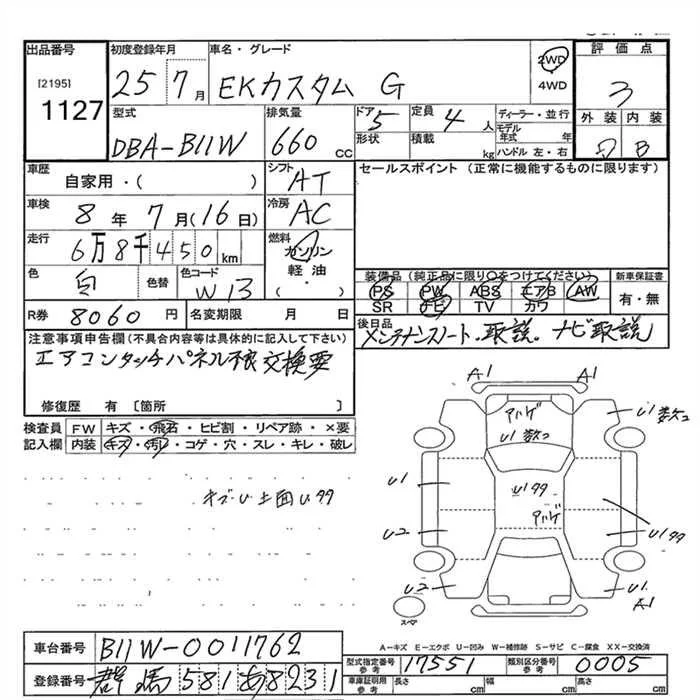 出品番号 初度登録年月 車名・グレード 評価点
[2195] 1127
25 7月 EKカスタム G 2WD 4WD 3
型式 排気量 ドア 5 定員 4人 ディーラー・並行 外装 内装
DBA-B11W 660 CC 形状 積載 kg モデル年式 年 ハンドル 左・右 B
車歴 自家用・( ) シフト AT セールスポイント (正常に機能するものに限ります)
車検 8年 7月(16日) 冷房 AC
走行 6万8千450km 燃料 ガソリン 軽油・( )
色 白 色替 色コード W13 装備品(純正品に限り○をつけてください) 新車保証書
PS PW ABS エアB AW 有・無
SR ナビ TV カワ
R券 8060円 名変期限 月 日 後日品 メンテナンスノート・取説。ナビ取説
注意事項申告欄(不具合内容等は具体的に記入して下さい)
エアコンタッチパネル不良 交換要
修復歴 有〔箇所 〕
検査員 FW キズ・飛石・ヒビ割・リペア跡・×要
記入欄 内装 キズ・汚れ・コゲ・穴・スレ・キレ・破レ
A1 A1
アハゲ
U1数ヶ
U1数ヶ
U1
U1タタ
アハゲ
U2
U1タタ
U2
U1
A1
スペア
A-キズ E-エクボ U-凹み W-補修跡 S-サビ C-腐食 XX-交換済
車台番号 B11W-0011762 型式指定番号 参考 17551 類別区分番号 参考 0005
登録番号 群馬 581 あ 8231 車庫証明用 参考 長さ cm 幅 cm 高さ cm